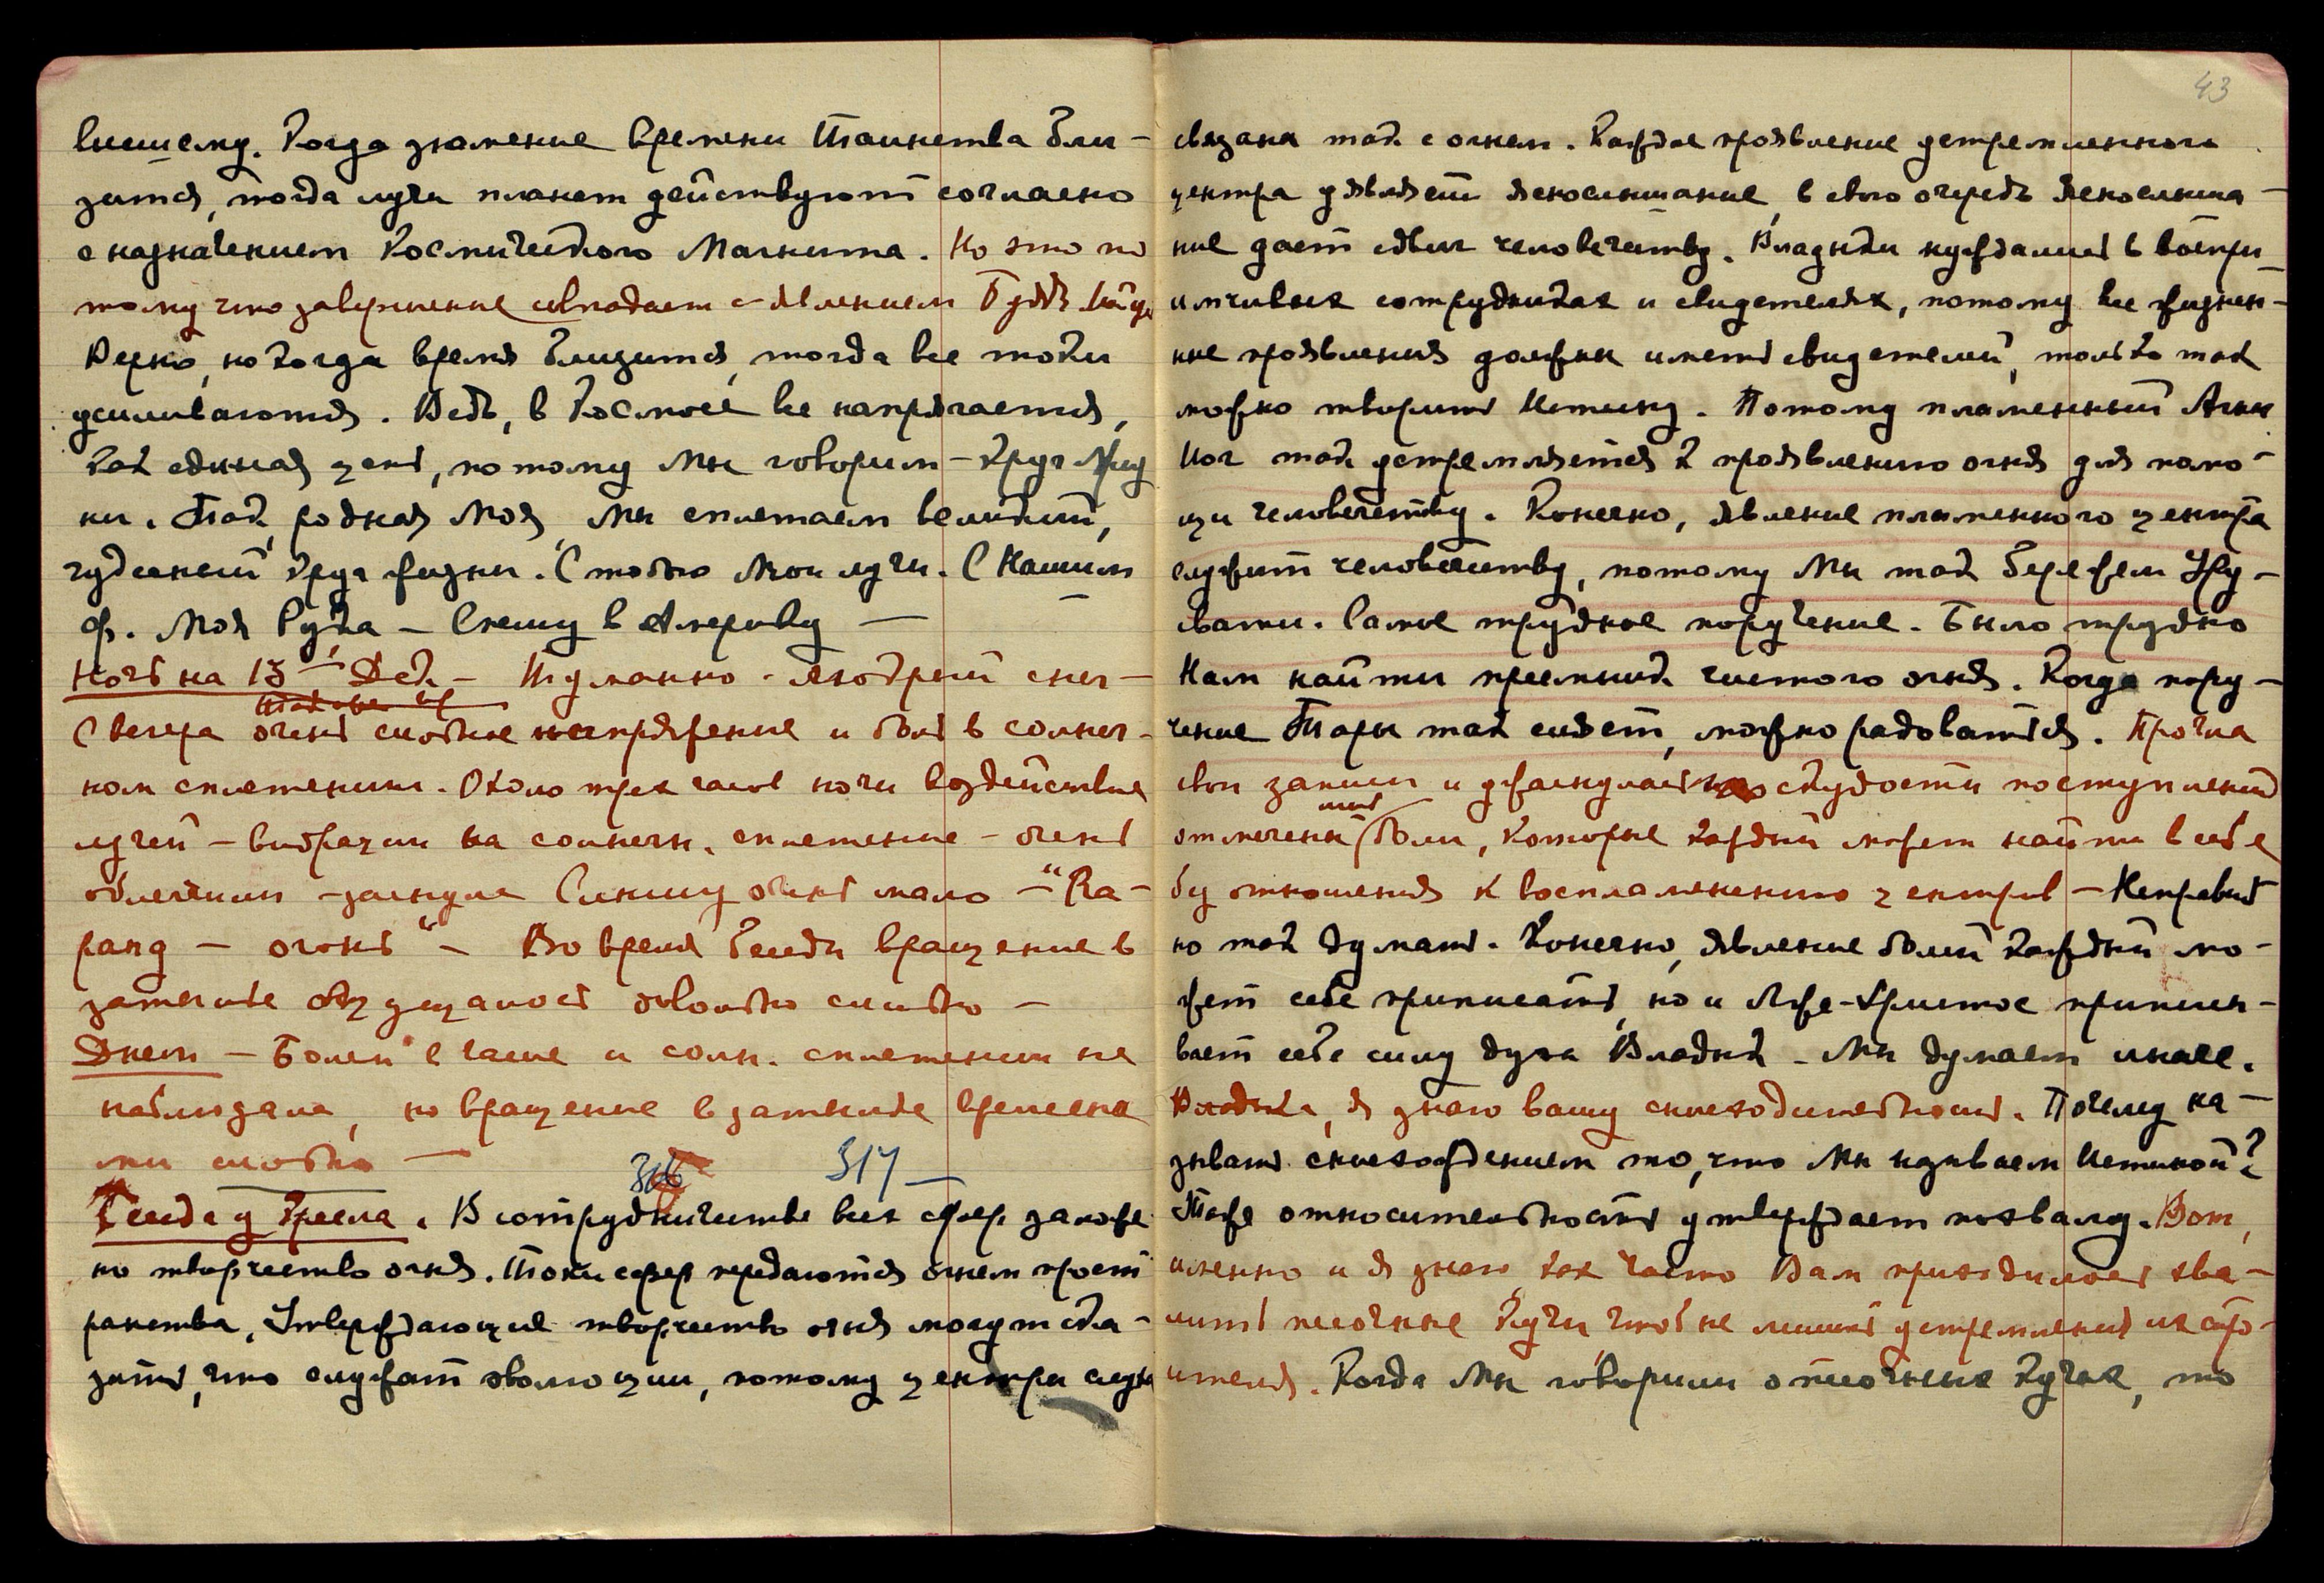 Высшему. Когда знамение времени Таинства бли-
зится, тогда лучи планет действуют согласно
с назначением Космического Магнита. Но это по
тому что завершение совпадает с явлением Будды Майтр
Верно, но когда время близится, тогда все токи
усиливаются. Ведь, в Космосе все напрягается,
как единая цепь, потому Мы говорим – круг Жиз
ни. Так, родная Моя, Мы сплетаем великий,
чудесный круг жизни. С тобою Мои лучи. С Нашим
Ф. Моя Рука – Спешу в Америку –
Ночь на 13– Дек. – Туманно –
С вечера очень сильное напряжение и боль в солнеч-
ном сплетении. Около трех часов ночи воздействие
лучей – вибрации на солнечн. сплетение – очень
облегчили – заснула очень мало – "Ка-
ранд – огонь" – Во время Беседы вращение в
затылке ощущалось довольно сильно –
Днем – Болей в чаше и солн. сплетении не
наблюдала, но вращение в затылке временa
ми сильно –
316 317 –
Беседа у Кресла. В сотрудничестве всех сфер заложе
но творчество огня. Токи сфер передаются огнем прост
ранства. Утверждающие творчество огня могут ска-
зать, что служат эволюции, потому центры слуха
43
связаны так с огнем. Каждое проявление устремленного
центра являет яснослышание, в свою очередь яснослыша-
ние дает сдвиг человечеству. Владыки нуждались в воспри-
имчивых сотрудниках и свидетелях, потому все жизнен-
ные проявления должны иметь свидетелей, только так
можно творить Истину. Потому пламенный Агни
Йог так устремляется к проявлению огня для помо-
щи человечеству. Конечно, явление пламенного центра
служит человечеству, потому Мы так бережем Уру-
свати. Самое трудное поручение. Было трудно
Нам найти преемника чистого огня. Когда пору-
чение Тары так сияет, можно радоваться. Прочла
свои записи и ужаснулась скудости поступлений
отмечены лишь боли, которые каждый может найти в себе
без отношения к воспламенению центров – Неправиль
но так думать. Конечно, явление болей каждый мо-
жет себе приписать, но и Лже-Христос приписы-
вает себе силу духа Владык – Мы думаем иначе.
Владыка, я знаю вашу снисходительность. Почему на-
зывать снисхождением то, что Мы называем Истиной?
Та же относительность утверждает похвалу. Вот,
именно и я знаю, как часто Вам приходилось хва-
лить песочные кучи, чтоб не лишить устремления их стро-
ителя. Когда Мы говорили о песочных кучах, то